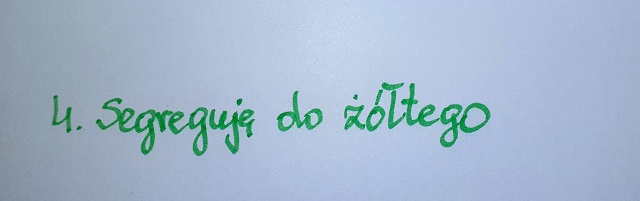 4. Segreguję do żółtego